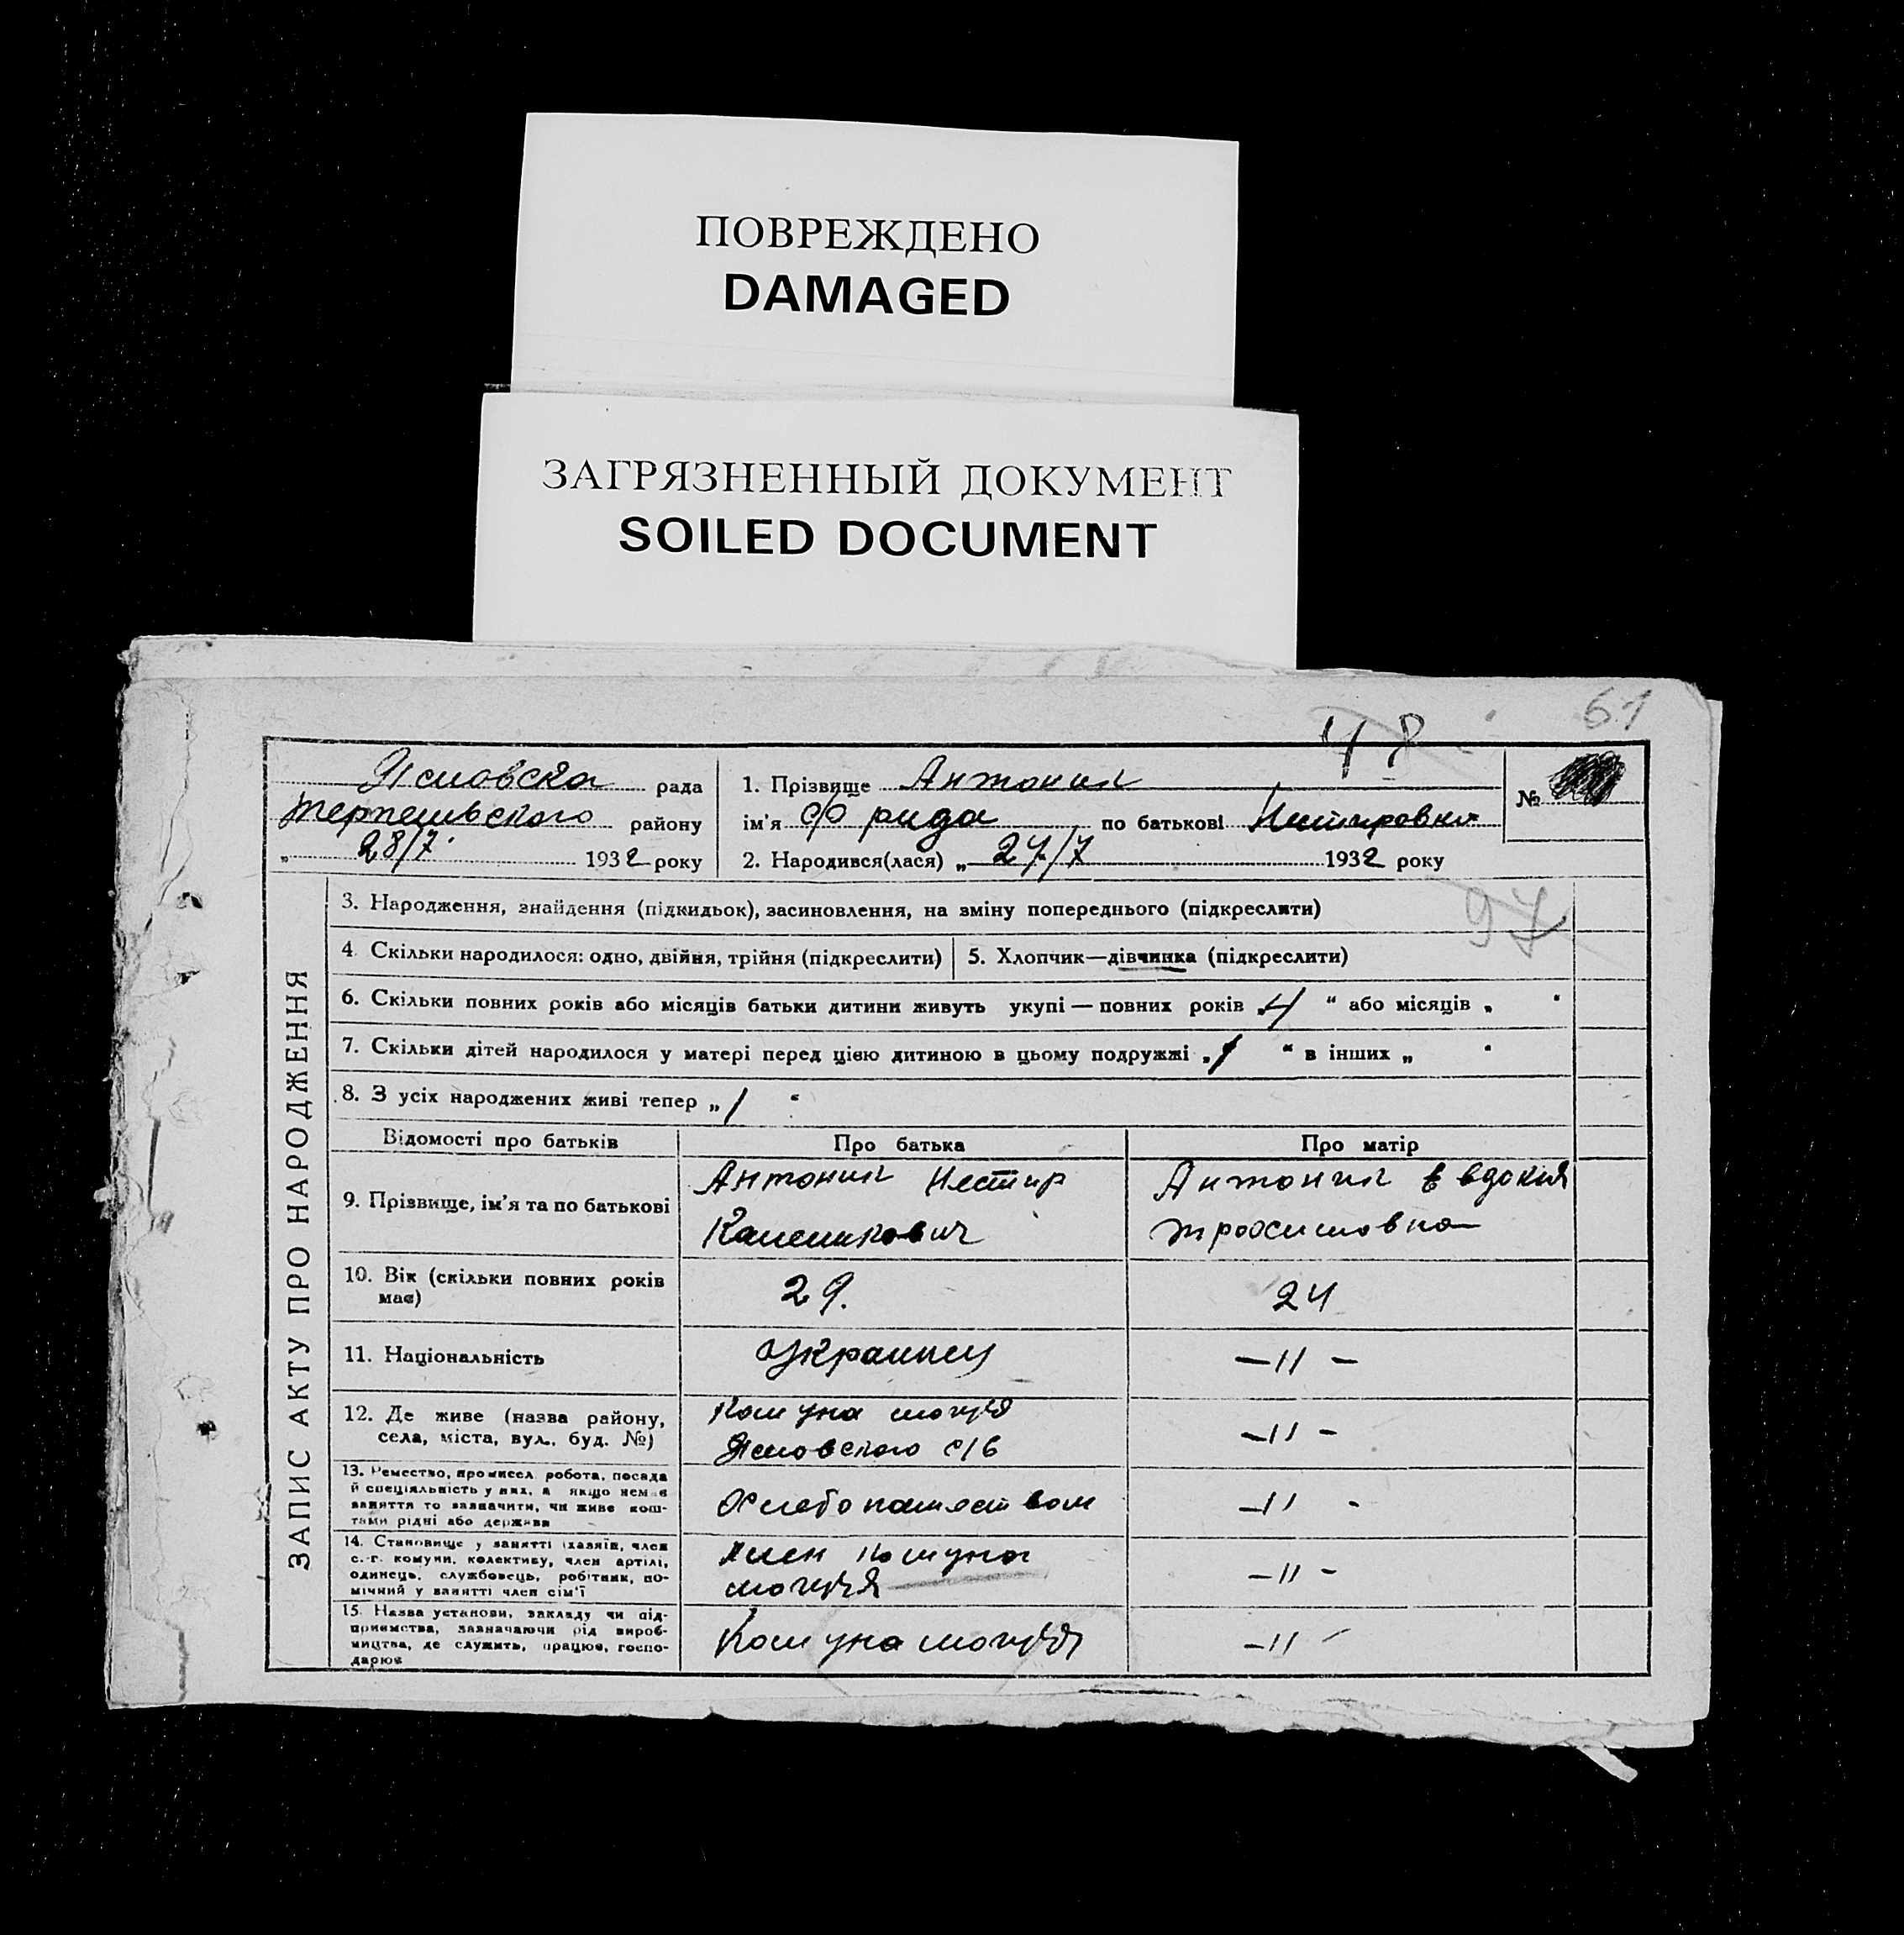 ПОВРЕЖДЕНО
DAMAGED
ЗАГРЯЗНЕННЫЙ ДОКУМЕНТ
SOILED DOCUMENT
61
48
рада
району
28/7 1932 року
1. Прізвище Антонил
ім'я Фрида по батькові Нестировна
№
2. Народився(лася) „ 27/7 1932 року
97
ЗАПИС АКТУ ПРО НАРОДЖЕННЯ
3. Народження, знайдення (підкидьок), засиновлення, на зміну попереднього (підкреслити)
4. Скільки народилося: одно, двійня, трійня (підкреслити)
5. Хлопчик—дівчинка (підкреслити)
6. Скільки повних років або місяців батьки дитини живуть укупі — повних років „4“ або місяців „ “
7. Скільки дітей народилося у матері перед цією дитиною в цьому подружжі „1“ в інших „ “
8. З усіх народжених живі тепер „1“
Відомості про батьків
Про батька
Про матір
9. Прізвище, ім'я та по батькові
Антонил Нестир
Антонил Евдокия
10. Вік (скільки повних років
має)
29.
24
11. Національність
Украинец
—11—
12. Де живе (назва району,
села, міста, вул., буд. №)
Комуна
с/б
—11—
13. Ремество, промисел, робота, посада
й спеціяльність у них, а якщо немає
заняття то зазначити, чи живе кош-
тами рідні або держава
Хлебопашеством
—11-
14. Становище у занятті (хазяїн, член
с.-г. комуни, колективу, член артілі,
одинець, службовець, робітник, по-
мічний у занятті член сім'ї
Член Комуна
—11—
15. Назва установи, закладу чи під-
приємства, зазначаючи рід вироб-
ництва, де служить, працює, госпо-
дарює
Комуна
—11—